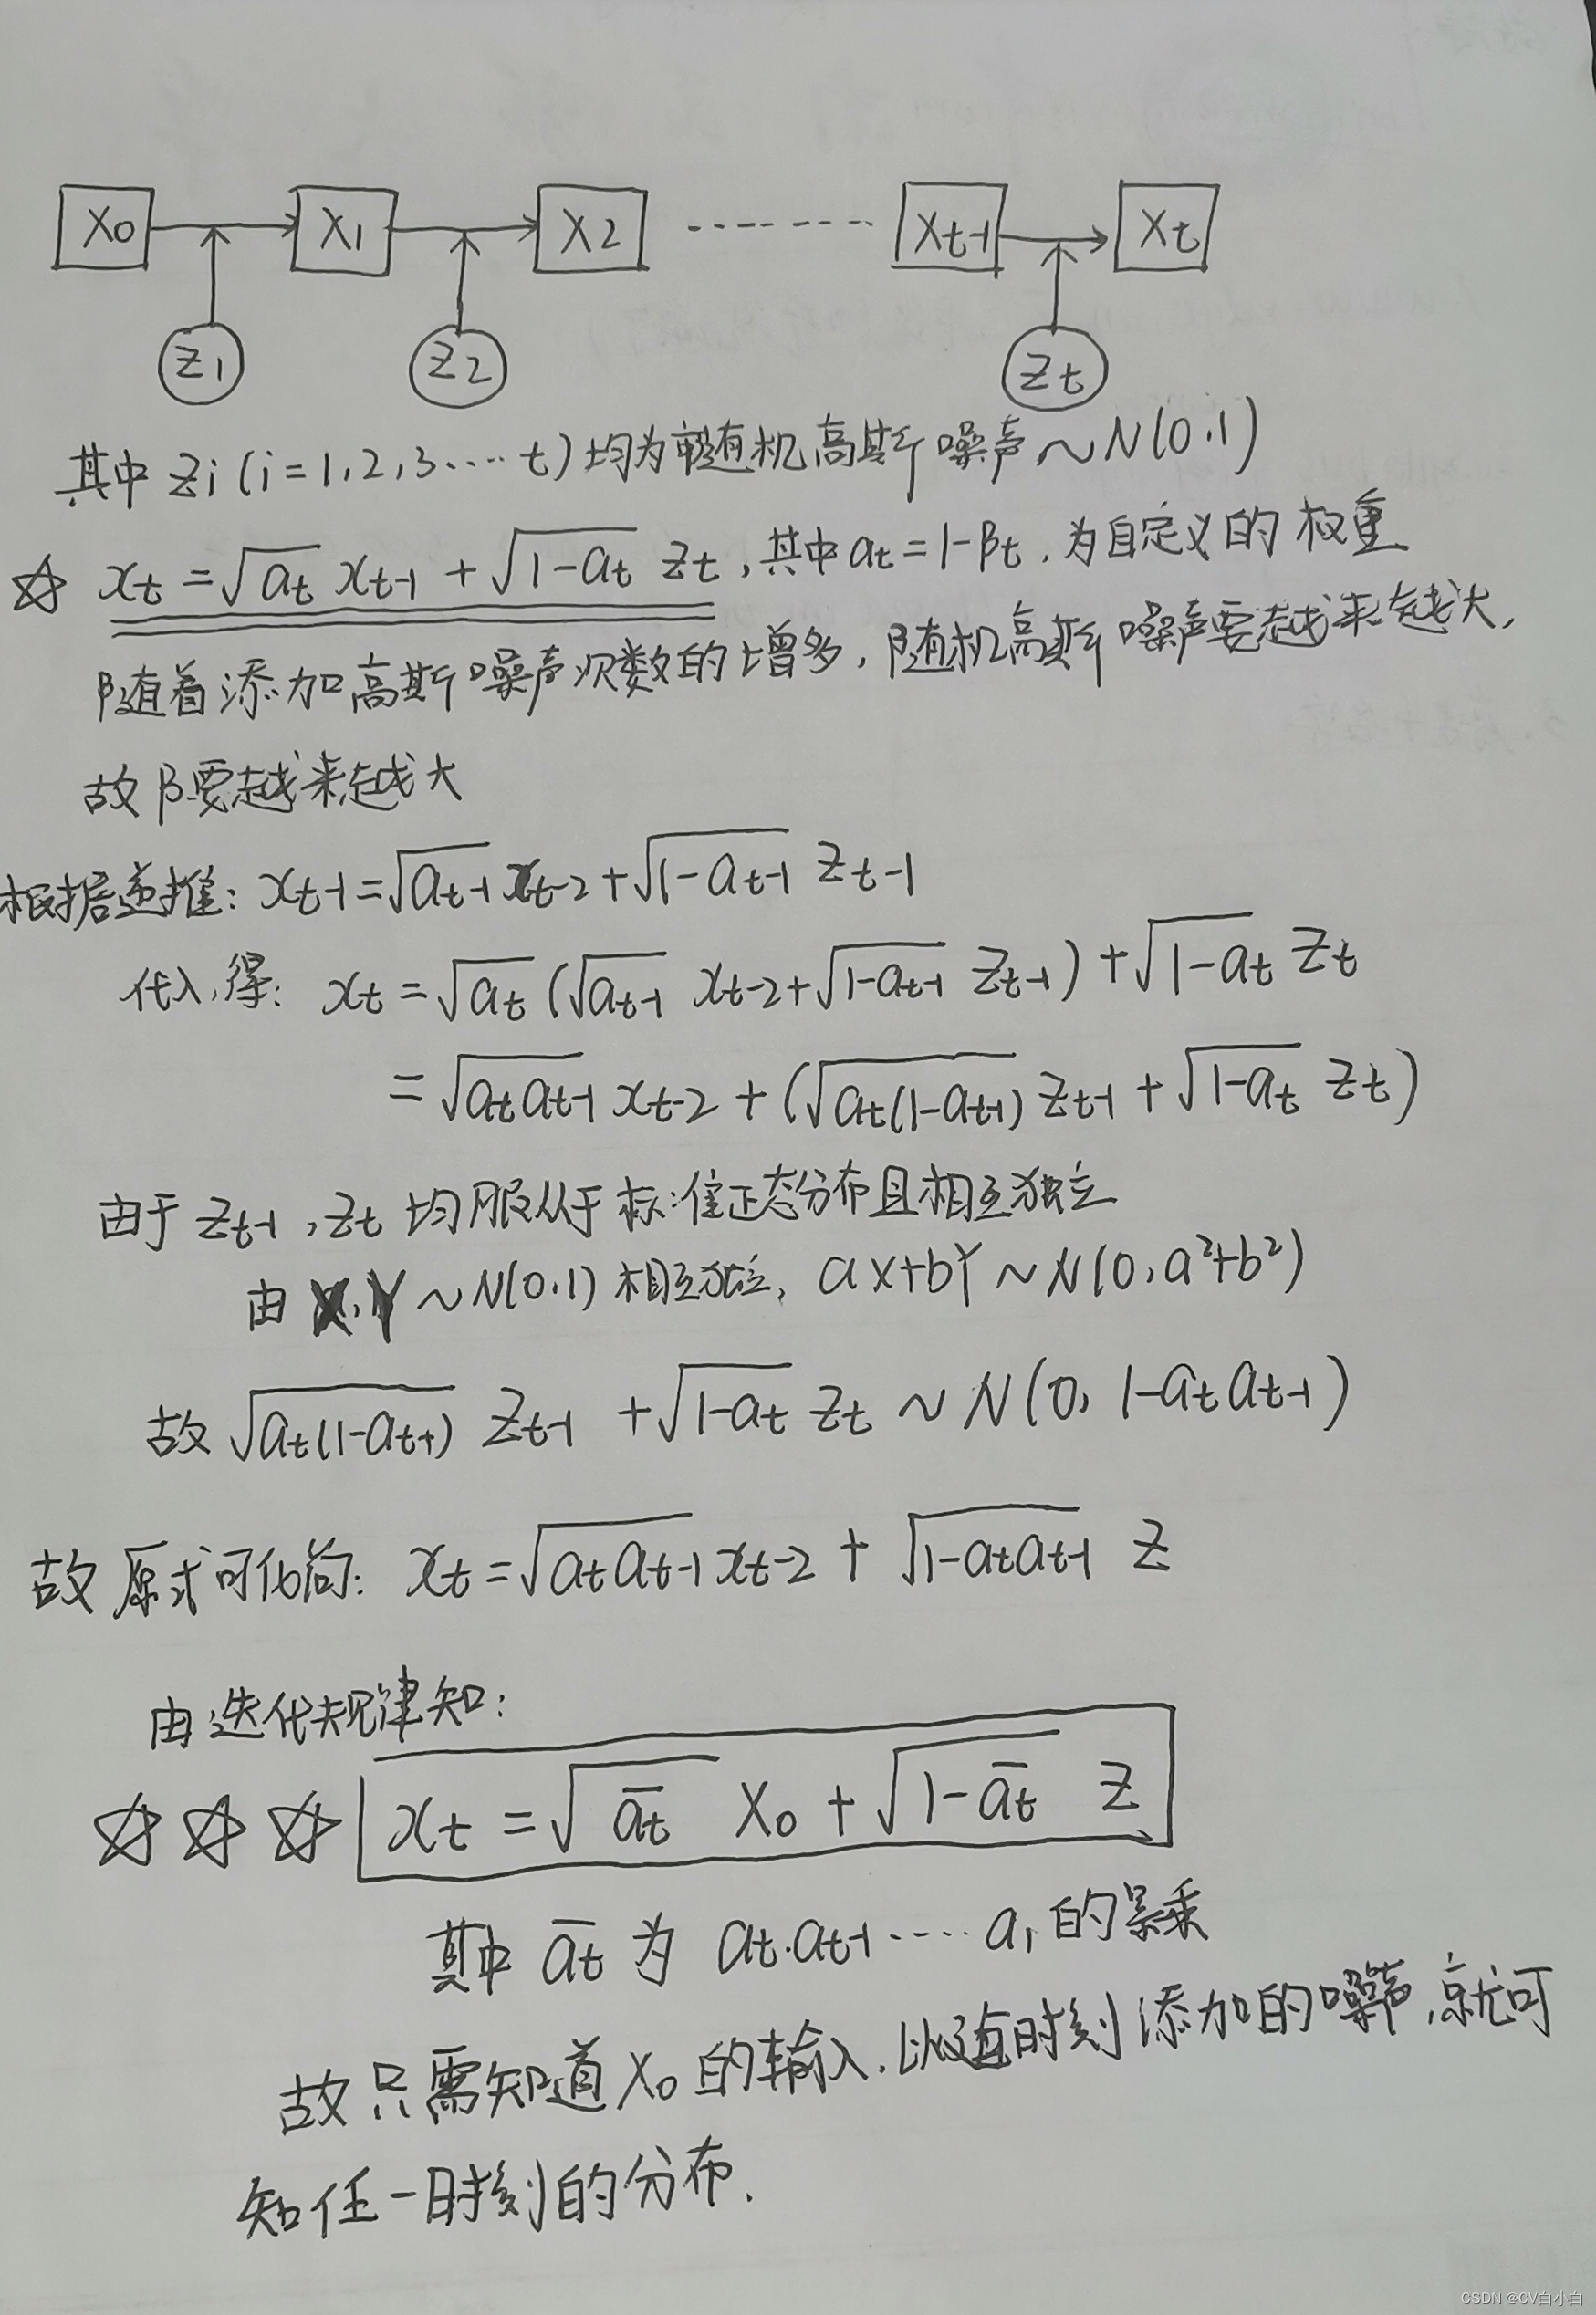 X₀ X₁ X₂ ------- Xₜ₋₁ Xₜ
Z₁ Z₂ Zₜ
其中 Zi (i=1,2,3....t) 均为随机高斯噪声 ~N(0,1)
☆ xₜ = √aₜ xₜ₋₁ + √(1-aₜ) Zₜ, 其中 aₜ = 1-βₜ, 为自定义的权重
随着添加高斯噪声次数的增多, 随机高斯噪声要越来越大,
故β要越来越大
根据递推: xₜ₋₁ = √aₜ₋₁ xₜ₋₂ + √(1-aₜ₋₁) Zₜ₋₁
代入得: xₜ = √aₜ (√aₜ₋₁ xₜ₋₂ + √(1-aₜ₋₁) Zₜ₋₁) + √(1-aₜ) Zₜ
= √(aₜaₜ₋₁) xₜ₋₂ + (√(aₜ(1-aₜ₋₁)) Zₜ₋₁ + √(1-aₜ) Zₜ)
由于 Zₜ₋₁, Zₜ 均服从于标准正态分布且相互独立
由 X, Y ~ N(0,1) 相互独立, aX+bY ~ N(0, a²+b²)
故 √(aₜ(1-aₜ₋₁)) Zₜ₋₁ + √(1-aₜ) Zₜ ~ N(0, 1-aₜaₜ₋₁)
故原式可化简: xₜ = √(aₜaₜ₋₁) xₜ₋₂ + √(1-aₜaₜ₋₁) Z
由迭代规律知:
☆☆☆ xₜ = √(āₜ) X₀ + √(1-āₜ) Z
其中 āₜ 为 aₜ·aₜ₋₁ ····· a₁ 的累乘
故只需知道 X₀ 的输入, 时刻添加的噪声, 就可
知任一时刻的分布.
CSDN @CV白小白